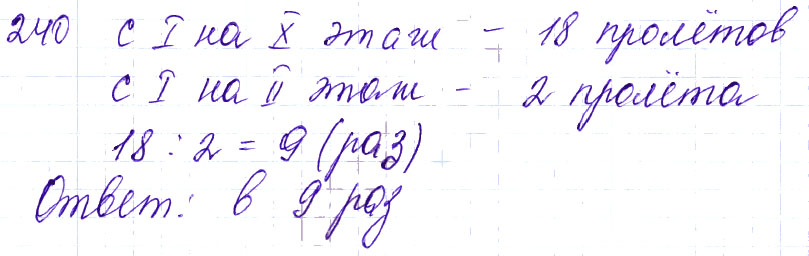 240 с I на X этаж - 18 пролётов
с I на II этаж - 2 пролёта
18 : 2 = 9 (раз)
Ответ: в 9 раз